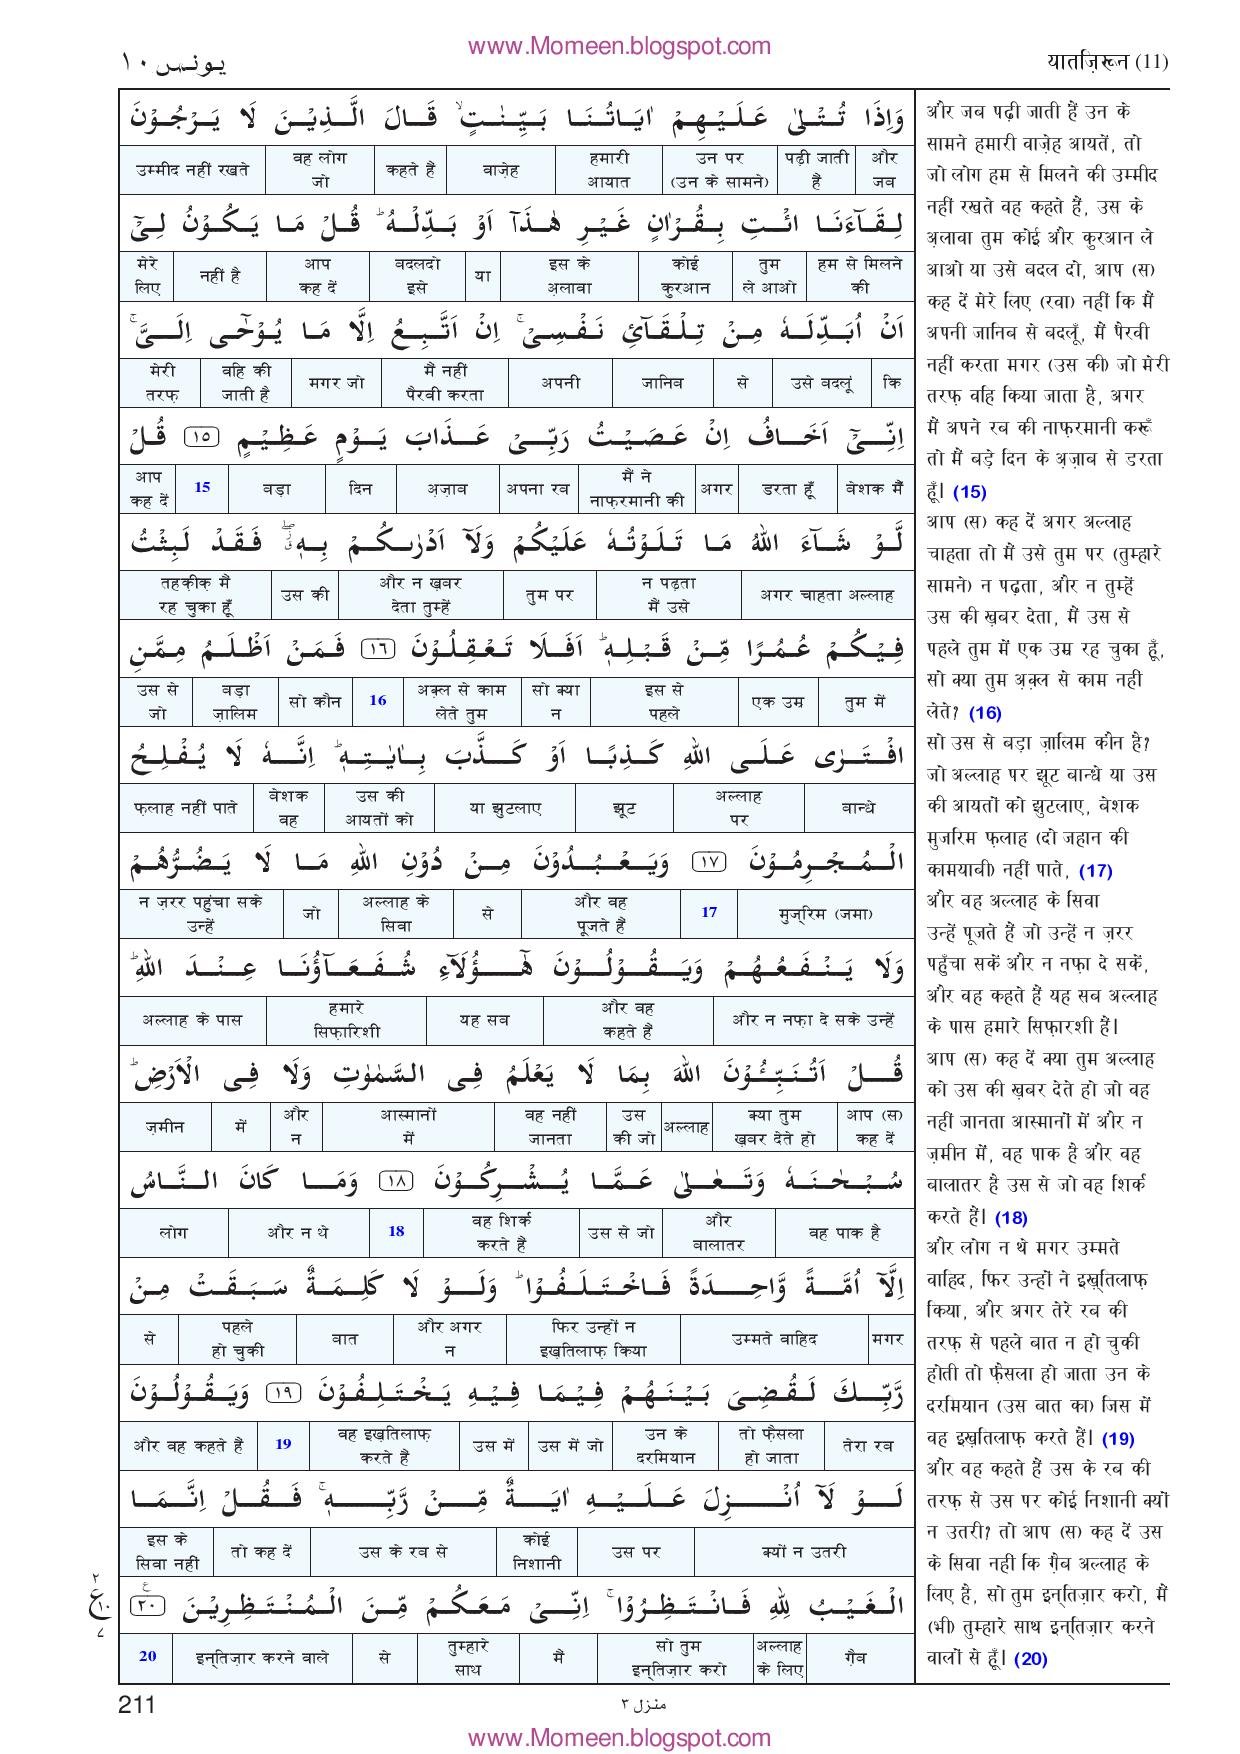 www.Momeen.blogspot.com
यातज़िरून (11)
يونس ١٠
وَاِذَا تُتْلٰى عَلَيْهِمْ اٰيَاتُنَا بَيِّنٰتٍ ۙ قَالَ الَّذِيْنَ لَا يَرْجُوْنَ
और जब | पढ़ी जाती हैं | उन पर (उन के सामने) | हमारी आयात | वाज़ेह | कहते हैं | वह लोग जो | उम्मीद नहीं रखते
لِقَآءَنَا ائْتِ بِقُرْاٰنٍ غَيْرِ هٰذَآ اَوْ بَدِّلْهُ ؕ قُلْ مَا يَكُوْنُ لِىْٓ
हम से मिलने की | तुम ले आओ | कोई कुरआन | इस के अ़लावा | या | बदलदो इसे | आप कह दें | नहीं है | मेरे लिए
اَنْ اُبَدِّلَهٗ مِنْ تِلْقَآئِ نَفْسِىْ ۚ اِنْ اَتَّبِعُ اِلَّا مَا يُوْحٰٓى اِلَىَّ ۚ
कि | उसे बदलूं | से | जानिब | अपनी | मैं नहीं पैरवी करता | मगर जो | वहि की जाती है | मेरी तरफ़
اِنِّىْٓ اَخَافُ اِنْ عَصَيْتُ رَبِّىْ عَذَابَ يَوْمٍ عَظِيْمٍ ١٥ قُلْ
बेशक मैं | डरता हूँ | अगर | मैं ने नाफ़रमानी की | अपना रब | अ़ज़ाब | दिन | बड़ा | 15 | आप कह दें
لَّوْ شَآءَ اللّٰهُ مَا تَلَوْتُهٗ عَلَيْكُمْ وَلَآ اَدْرٰىكُمْ بِهٖ ۖ فَقَدْ لَبِثْتُ
अगर चाहता अल्लाह | न पढ़ता मैं उसे | तुम पर | और न ख़बर देता तुम्हें | उस की | तहक़ीक़ मैं रह चुका हूँ
فِيْكُمْ عُمُرًا مِّنْ قَبْلِهٖ ؕ اَفَلَا تَعْقِلُوْنَ ١٦ فَمَنْ اَظْلَمُ مِمَّنِ
तुम में | एक उम्र | इस से पहले | सो क्या न | अक़्ल से काम लेते तुम | 16 | सो कौन | बड़ा ज़ालिम | उस से जो
افْتَرٰى عَلَى اللّٰهِ كَذِبًا اَوْ كَذَّبَ بِاٰيٰتِهٖ ؕ اِنَّهٗ لَا يُفْلِحُ
बान्धे | अल्लाह पर | झूट | या झुटलाए | उस की आयतों को | बेशक वह | फ़लाह नहीं पाते
الْمُجْرِمُوْنَ ١٧ وَيَعْبُدُوْنَ مِنْ دُوْنِ اللّٰهِ مَا لَا يَضُرُّهُمْ
मुज्रिम (जमा) | 17 | और वह पूजते हैं | से | अल्लाह के सिवा | जो | न ज़रर पहुंचा सके उन्हें
وَلَا يَنْفَعُهُمْ وَيَقُوْلُوْنَ هٰٓؤُلَآءِ شُفَعَآؤُنَا عِنْدَ اللّٰهِ ؕ
और न नफ़ा दे सके उन्हें | और वह कहते हैं | यह सब | हमारे सिफ़ारिशी | अल्लाह के पास
قُلْ اَتُنَبِّـُٔوْنَ اللّٰهَ بِمَا لَا يَعْلَمُ فِى السَّمٰوٰتِ وَلَا فِى الْاَرْضِ ؕ
आप (स) कह दें | क्या तुम ख़बर देते हो | अल्लाह | उस की जो | वह नहीं जानता | आस्मानों में | और न | में | ज़मीन
سُبْحٰنَهٗ وَتَعٰلٰى عَمَّا يُشْرِكُوْنَ ١٨ وَمَا كَانَ النَّاسُ
वह पाक है | और बालातर | उस से जो | वह शिर्क करते हैं | 18 | और न थे | लोग
اِلَّآ اُمَّةً وَّاحِدَةً فَاخْتَلَفُوْا ؕ وَلَوْ لَا كَلِمَةٌ سَبَقَتْ مِنْ
मगर | उम्मते वाहिद | फिर उन्हों न इख़तिलाफ़ किया | और अगर न | बात | पहले हो चुकी | से
رَّبِّكَ لَقُضِىَ بَيْنَهُمْ فِيْمَا فِيْهِ يَخْتَلِفُوْنَ ١٩ وَيَقُوْلُوْنَ
तेरा रब | तो फ़ैसला हो जाता | उन के दरमियान | उस में जो | उस में | वह इख़तिलाफ़ करते हैं | 19 | और वह कहते हैं
لَوْ لَآ اُنْزِلَ عَلَيْهِ اٰيَةٌ مِّنْ رَّبِّهٖ ۚ فَقُلْ اِنَّمَا
क्यों न उतरी | उस पर | कोई निशानी | उस के रब से | तो कह दें | इस के सिवा नहीं
الْغَيْبُ لِلّٰهِ فَانْتَظِرُوْا ۚ اِنِّىْ مَعَكُمْ مِّنَ الْمُنْتَظِرِيْنَ ٢٠
ग़ैब | अल्लाह के लिए | सो तुम इन्तिज़ार करो | मैं | तुम्हारे साथ | से | इन्तिज़ार करने वाले | 20
٢
ع ١٠
٧
और जब पढ़ी जाती हैं उन के
सामने हमारी वाज़ेह आयतें, तो
जो लोग हम से मिलने की उम्मीद
नहीं रखते वह कहते हैं, उस के
अ़लावा तुम कोई और कुरआन ले
आओ या उसे बदल दो, आप (स)
कह दें मेरे लिए (रवा) नहीं कि मैं
अपनी जानिब से बदलूँ, मैं पैरवी
नहीं करता मगर (उस की) जो मेरी
तरफ़ वहि किया जाता है, अगर
मैं अपने रब की नाफ़रमानी करूँ
तो मैं बड़े दिन के अ़ज़ाब से डरता
हूँ। (15)
आप (स) कह दें अगर अल्लाह
चाहता तो मैं उसे तुम पर (तुम्हारे
सामने) न पढ़ता, और न तुम्हें
उस की ख़बर देता, मैं उस से
पहले तुम में एक उम्र रह चुका हूँ,
सो क्या तुम अ़क़्ल से काम नही
लेते? (16)
सो उस से बड़ा ज़ालिम कौन है?
जो अल्लाह पर झूट बान्धे या उस
की आयतों को झुटलाए, बेशक
मुजरिम फ़लाह (दो जहान की
कामयाबी) नहीं पाते, (17)
और वह अल्लाह के सिवा
उन्हें पूजते हैं जो उन्हें न ज़रर
पहुँचा सकें और न नफ़ा दे सकें,
और वह कहते हैं यह सब अल्लाह
के पास हमारे सिफ़ारशी हैं।
आप (स) कह दें क्या तुम अल्लाह
को उस की ख़बर देते हो जो वह
नहीं जानता आस्मानों में और न
ज़मीन में, वह पाक है और वह
बालातर है उस से जो वह शिर्क
करते हैं। (18)
और लोग न थे मगर उम्मते
वाहिद, फिर उन्हों ने इख़्तिलाफ़
किया, और अगर तेरे रब की
तरफ़ से पहले बात न हो चुकी
होती तो फ़ैसला हो जाता उन के
दरमियान (उस बात का) जिस में
वह इख़तिलाफ़ करते हैं। (19)
और वह कहते हैं उस के रब की
तरफ़ से उस पर कोई निशानी क्यों
न उतरी? तो आप (स) कह दें उस
के सिवा नही कि ग़ैब अल्लाह के
लिए है, सो तुम इन्तिज़ार करो, मैं
(भी) तुम्हारे साथ इन्तिज़ार करने
वालों से हूँ। (20)
211
منزل ٣
www.Momeen.blogspot.com